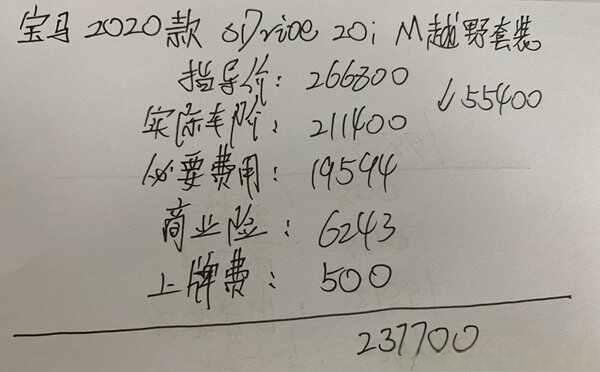 宝马 2020款 sDrive 20i M越野套装
指导价: 266800
↓55400
实际车价: 211400
必要费用: 19594
商业险: 6243
上牌费: 500
237700